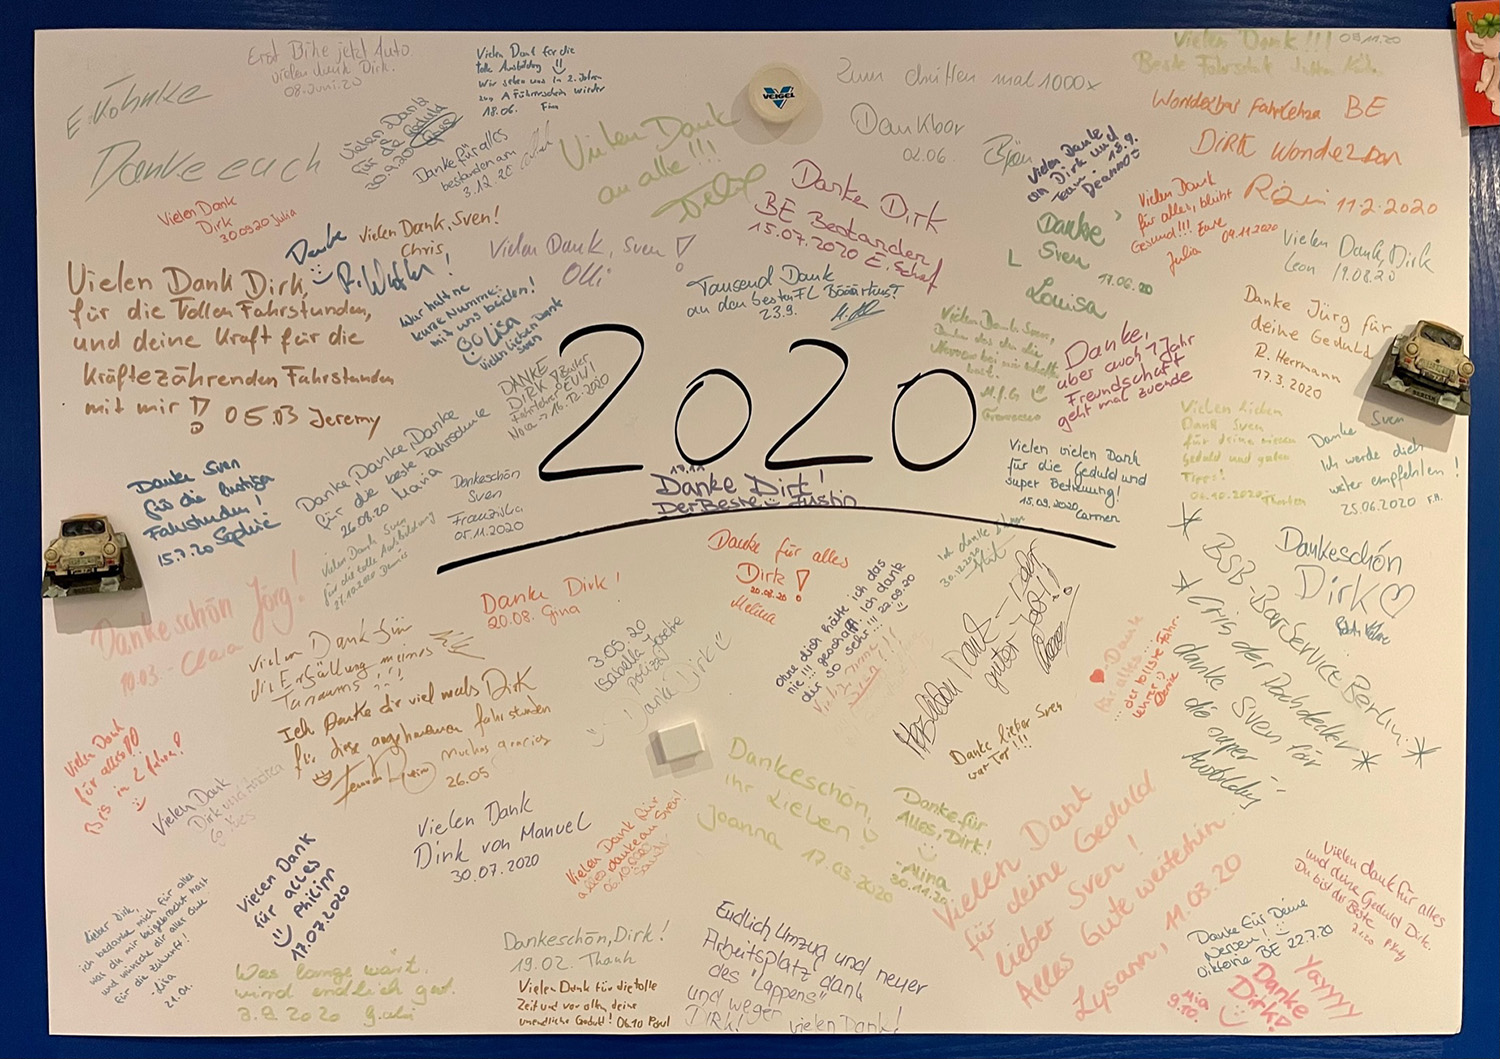 Erst Bike jetzt Auto
vielen dank Dirk.
08. Juni. 20
E. Köhnke
Danke euch
Vielen Dank für die
tolle Ausbildung
Wir sehen uns in 2. Jahren
zum A Führerschein wieder
18.06. Finn
Vielen Dank
für die Geduld
30.9.2020
Danke für alles
bestanden am
3.12.20
VEIGEL
Vielen Dank
an alle!!!
Felix
Zum dritten mal 1000x
Dankbar
02.06. Björn
Vielen Dank!!! 08.11.20
Wonderbar Fahrlehra BE
DIRK WONDEZBAR
11.2.2020
Vielen Danke
an Dirk und
Team. 18.9.
Deanno
Vielen Dank
für alles, bleibt
Gesund!!! Eure
Julia 04.11.2020
Vielen Dank
Dirk
30.09.20 Julia
Danke
vielen Dank, Sven!
Chris
Vielen Dank, Sven!
Olli
Danke Dirk
BE Bestanden
15.07.2020 E. Schaf
Danke
Sven
17.06.20
L
Louisa
Vielen Dank, Dirk
Leon 19.08.20
Vielen Dank Dirk,
für die Tollen Fahrstunden,
und deine Kraft für die
kräftezährenden Fahrstunden
mit mir! 05.03 Jeremy
War halt ne
kurze Nummer
mit uns beiden!
GG Lisa
vielen lieben Dank
Sven
Tausend Dank
an den besten FL
23.9.
Danke Jürg für
deine Geduld
R. Herrmann
17.3.2020
Danke,
aber auch 1 Jahr
Freundschaft
geht mal zuende
DANKE
DIRK
Nora -> 16.12.2020
2020
17.12
Danke Dirk!
Der Beste Justin
Danke, Danke, Danke
für die beste Fahrschule
26.08.20 Maria
Dankeschön
Sven
Franziska
05.11.2020
Danke Sven
für die lustigen
Fahrstunden!
15.7.20 Sophie
Vielen Dank Sven
für die tolle Ausbildung
27.10.2020
Vielen vielen Dank
für die Geduld und
super Betreuung!
15.09.2020
Carmen
Vielen lieben
Dank Sven
für deine
Geduld und guten
Tipps!
06.10.2020
Danke Sven
Ich werde dich
weiter empfehlen!
25.06.2020
Dankeschön Jörg!
10.03. - Clara
Danke Dirk!
20.08. Gina
Danke für alles
Dirk!
20.08.20
Melina
Ich danke Ihnen
30.12.2020
Dankeschön
Dirk ♡
* BSB-BarService Berlin. *
* Cris der Dachdecker *
danke Sven für
die super
Ausbildung
Vielen Dank für
die Erfüllung meines
Traums!!!
Ich Danke dir viel mals Dirk
für diese angenehmen fahrstunden
Muchas gracias
26.05
3.09.20
Isabella Zoebie
Danke Dirk
ohne dich hätte ich das
nie!!! geschafft. Ich danke
dir so sehr!!! 22.09.20
Danke lieber Sven
war Top!!!
♥-Danke
für alles
... der tollste Fahr-
lehrer :)
Vielen Dank
für alles!!
Bis in 2 Jahren!
Vielen Dank
Dirk und
Vielen Dank
Dirk von Manuel
30.07.2020
Vielen Dank für
alles danke an Sven!
06.10.2020
Sarah
Dankeschön,
ihr Lieben!
Joanna 17.03.2020
Danke für
Alles, Dirk!
-Alina
30.11.20
Vielen Dank
für deine Geduld
lieber Sven!
Alles Gute weiterhin.
Lysann, 11.03.20
Vielen dank für alles
und deine Geduld Dirk.
Du bist der Beste
Vielen Dank
für alles
Philipp
17.07.2020
Lieber Dirk,
ich bedanke mich für alles
was du mir beigebracht hast
und wünsche dir alles Gute
für die Zukunft!
-Lina
21.01.
Was lange wärt.
wird endlich gut.
3.9.2020 Gabi
Dankeschön, Dirk!
19.02. Thanh
Vielen Dank für die tolle
Zeit und vor allem deine
unendliche Geduld! 06.10 Paul
Endlich Umzug und neuer
Arbeitsplatz dank
des "Lappens"
und weger
DIRK!
vielen Dank!
Danke für Deine
Nerven!
Viktoria BE 22.7.20
Yayyyy
Danke
Dirk!
Mia
9.10.